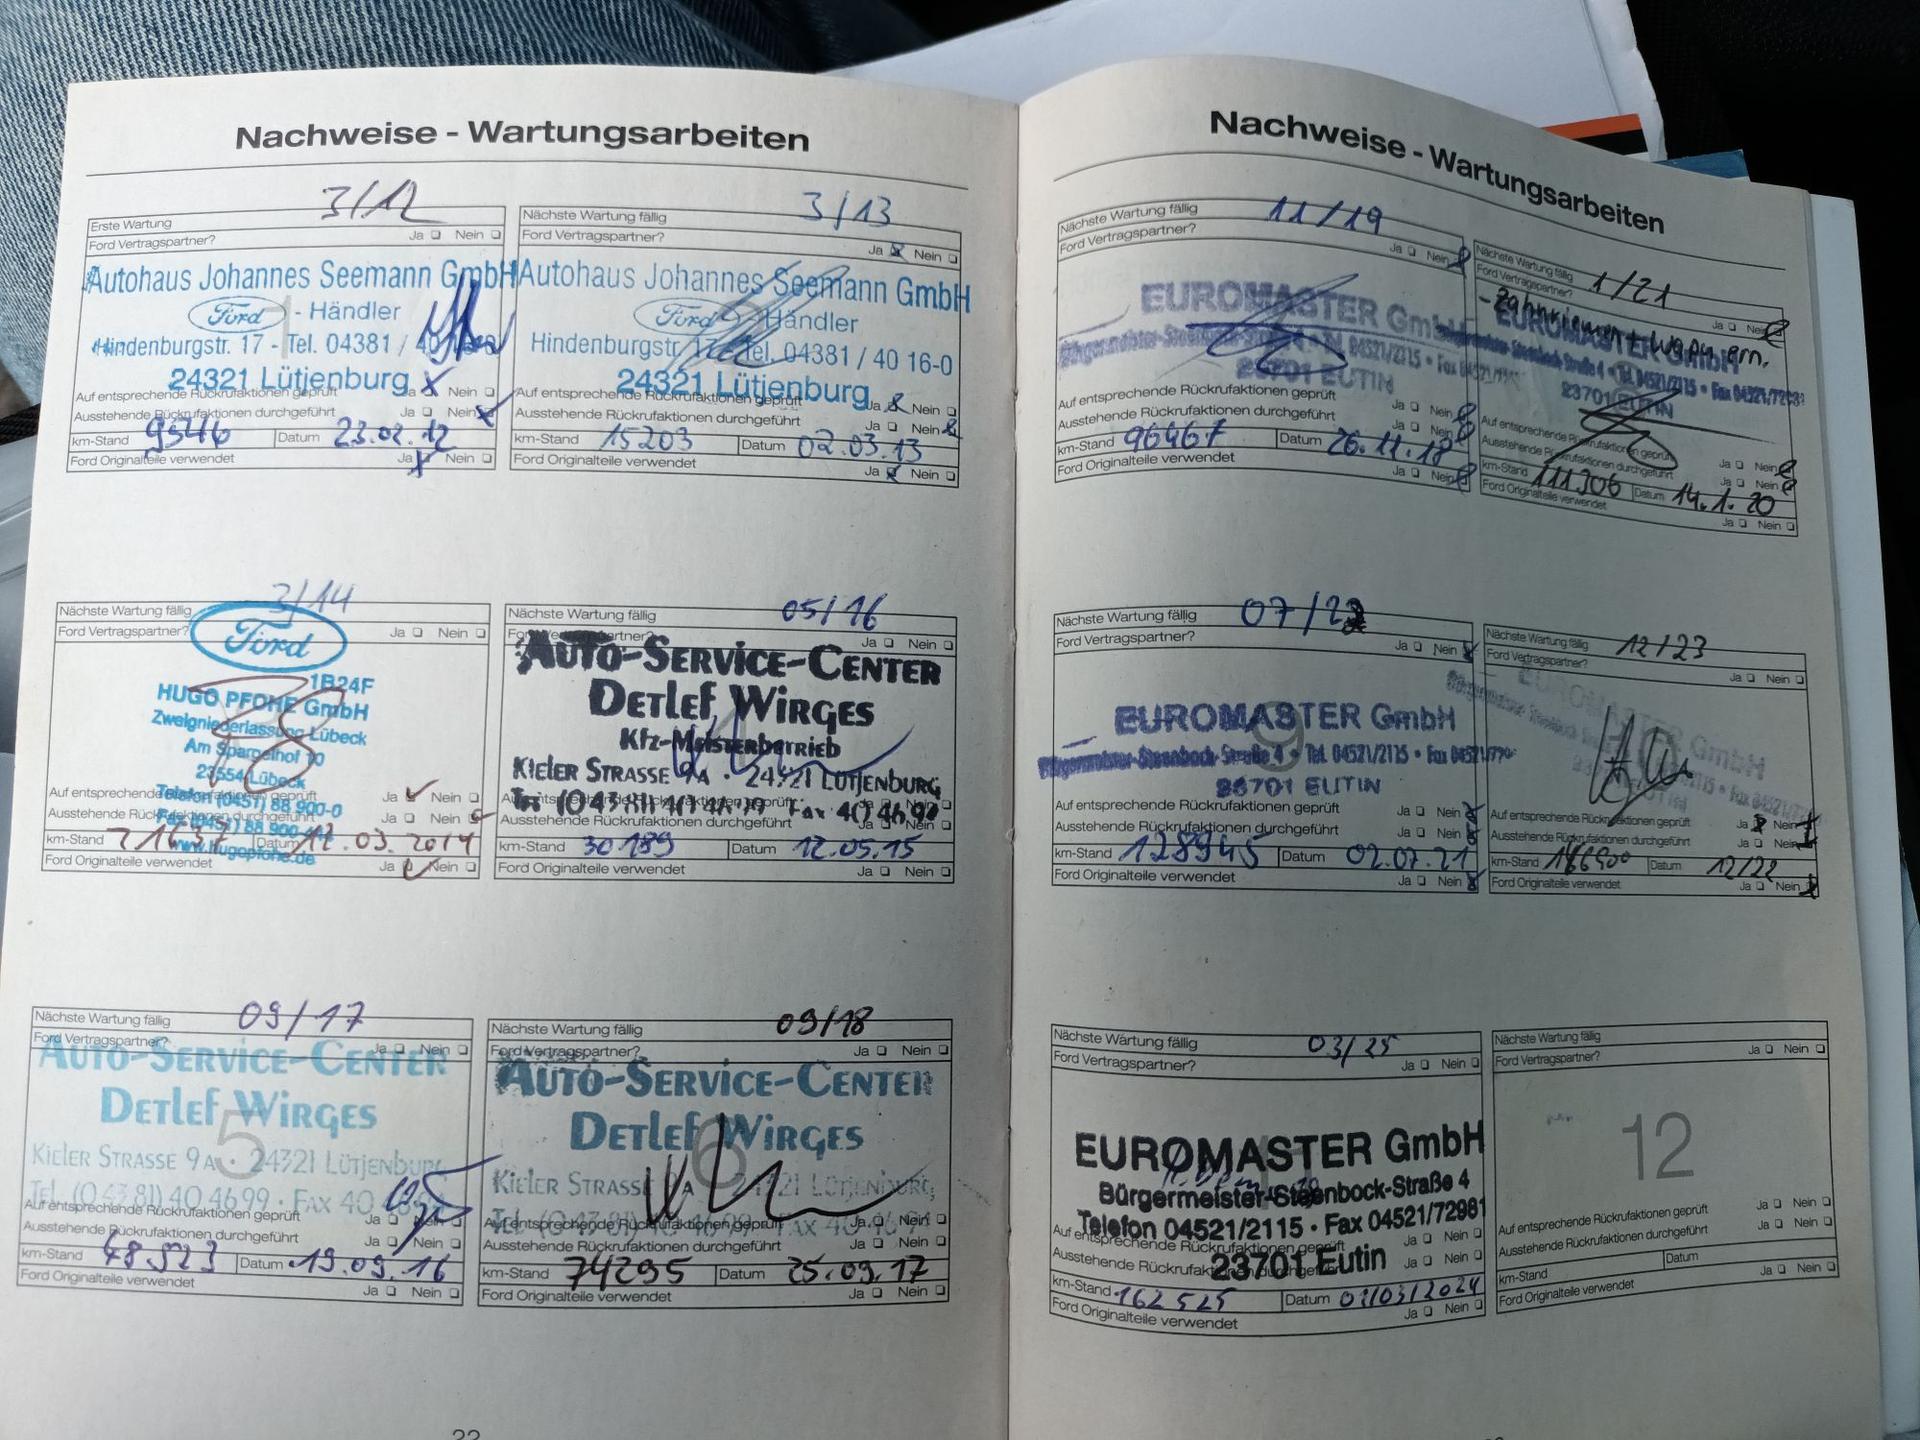 Nachweise - Wartungsarbeiten
3/12
Erste Wartung
Ford Vertragspartner? Ja Nein
Autohaus Johannes Seemann GmbH
Ford - Händler
Hindenburgstr. 17 - Tel. 04381 /
24321 Lütjenburg
Auf entsprechende Rückrufaktionen geprüft Ja Nein
Ausstehende Rückrufaktionen durchgeführt Ja Nein
km-Stand 9546 Datum 23.02.12
Ford Originalteile verwendet Ja Nein
Nächste Wartung fällig 3/13
Ford Vertragspartner? Ja Nein
Autohaus Johannes Seemann GmbH
Ford - Händler
Hindenburgstr. 17 - Tel. 04381 / 40 16-0
24321 Lütjenburg
Auf entsprechende Rückrufaktionen geprüft Ja Nein
Ausstehende Rückrufaktionen durchgeführt Ja Nein
km-Stand 15203 Datum 02.03.13
Ford Originalteile verwendet Ja Nein
Nächste Wartung fällig 3/14
Ford Vertragspartner? Ja Nein
Ford
1B24F
HUGO PFOHE GmbH
Zweigniederlassung Lübeck
Am Spargelhof 10
23554 Lübeck
Telefon (0451) 88 900-0
Auf entsprechende Rückrufaktionen geprüft Ja Nein
Ausstehende Rückrufaktionen durchgeführt Ja Nein
www.hugopfohe.de
km-Stand Datum 12.03.2014
Ford Originalteile verwendet Ja Nein
Nächste Wartung fällig 05/16
Ford Vertragspartner? Ja Nein
Auto-Service-Center
Detlef Wirges
Kfz-Meisterbetrieb
Kieler Strasse 9A · 24321 Lütjenburg
Tel. (0 43 81) 40 46 99 · Fax 40 46 98
Auf entsprechende Rückrufaktionen geprüft Ja Nein
Ausstehende Rückrufaktionen durchgeführt Ja Nein
km-Stand 30189 Datum 12.05.15
Ford Originalteile verwendet Ja Nein
Nächste Wartung fällig 09/17
Ford Vertragspartner? Ja Nein
Auto-Service-Center
Detlef Wirges
5
Kieler Strasse 9A · 24321 Lütjenburg
Tel. (0 43 81) 40 46 99 · Fax 40
Auf entsprechende Rückrufaktionen geprüft Ja Nein
Ausstehende Rückrufaktionen durchgeführt Ja Nein
km-Stand 48523 Datum 19.09.16
Ford Originalteile verwendet Ja Nein
Nächste Wartung fällig 09/18
Ford Vertragspartner? Ja Nein
Auto-Service-Center
Detlef Wirges
6
Kieler Strasse 9A 24321 Lütjenburg
Tel. (0 43 81) 40 46 99 · Fax 40 46 98
Auf entsprechende Rückrufaktionen geprüft Ja Nein
Ausstehende Rückrufaktionen durchgeführt Ja Nein
km-Stand 74295 Datum 25.09.17
Ford Originalteile verwendet Ja Nein
Nachweise - Wartungsarbeiten
Nächste Wartung fällig 11/19
Ford Vertragspartner? Ja Nein
EUROMASTER GmbH
Bürgermeister-Steenbock-Straße 4 · Tel. 04521/2115 · Fax
23701 EUTIN
Auf entsprechende Rückrufaktionen geprüft Ja Nein
Ausstehende Rückrufaktionen durchgeführt Ja Nein
km-Stand 96467 Datum 26.11.18
Ford Originalteile verwendet Ja Nein
Nächste Wartung fällig 1/21
Ford Vertragspartner? Ja Nein
- Zahnriemen + Wapu ern.
EUROMASTER GmbH
Bürgermeister-Steenbock-Straße 4 · Tel. 04521/2115 · Fax 04521/72981
23701 EUTIN
Auf entsprechende Rückrufaktionen geprüft Ja Nein
Ausstehende Rückrufaktionen durchgeführt Ja Nein
km-Stand 111306 Datum 14.1.20
Ford Originalteile verwendet Ja Nein
Nächste Wartung fällig 07/22
Ford Vertragspartner? Ja Nein
9
EUROMASTER GmbH
Bürgermeister-Steenbock-Straße 4 · Tel. 04521/2115 · Fax
23701 EUTIN
Auf entsprechende Rückrufaktionen geprüft Ja Nein
Ausstehende Rückrufaktionen durchgeführt Ja Nein
km-Stand 128945 Datum 02.07.21
Ford Originalteile verwendet Ja Nein
Nächste Wartung fällig 12/23
Ford Vertragspartner? Ja Nein
EUROMASTER GmbH
10
Auf entsprechende Rückrufaktionen geprüft Ja Nein
Ausstehende Rückrufaktionen durchgeführt Ja Nein
km-Stand Datum 12/22
Ford Originalteile verwendet Ja Nein
Nächste Wartung fällig 03/25
Ford Vertragspartner? Ja Nein
EUROMASTER GmbH
Bürgermeister-Steenbock-Straße 4
Telefon 04521/2115 · Fax 04521/72981
23701 Eutin
Auf entsprechende Rückrufaktionen geprüft Ja Nein
Ausstehende Rückrufaktionen durchgeführt Ja Nein
km-Stand 162525 Datum 01/03/2024
Ford Originalteile verwendet Ja Nein
Nächste Wartung fällig
Ford Vertragspartner? Ja Nein
12
Auf entsprechende Rückrufaktionen geprüft Ja Nein
Ausstehende Rückrufaktionen durchgeführt Ja Nein
km-Stand Datum
Ford Originalteile verwendet Ja Nein